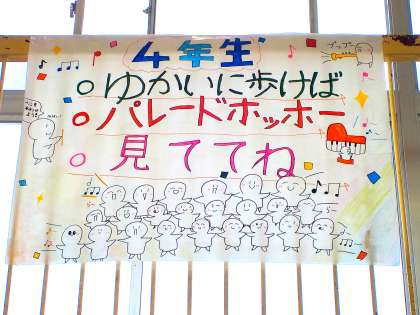 4年生
ゆかいに歩けば
パレードホッホー
見ててね